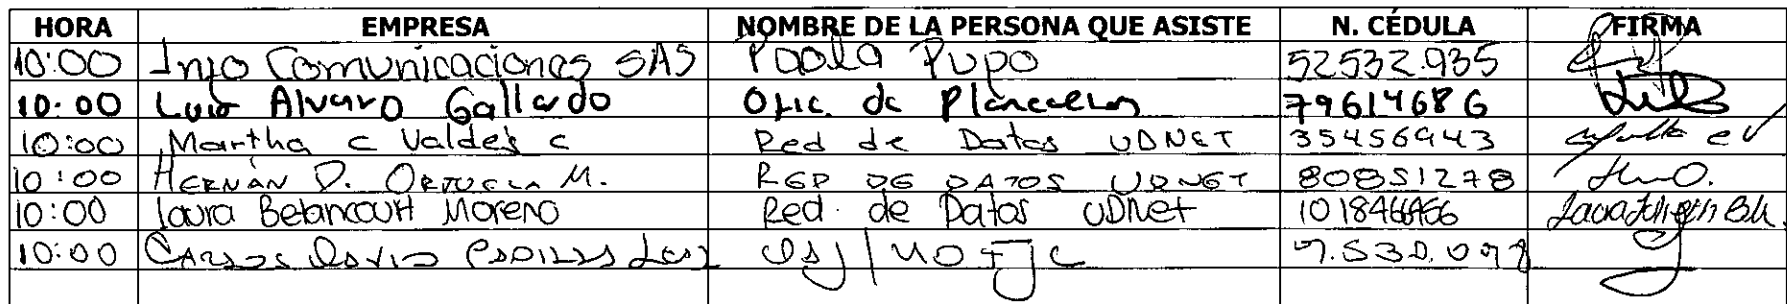 HORA EMPRESA NOMBRE DE LA PERSONA QUE ASISTE N. CÉDULA FIRMA
10:00 Info Comunicaciones SAS Paola Pupo 52532.935
10:00 Luis Alvaro Gallardo Ofic. de Planeación 79614686
10:00 Martha C Valdes C Red de Datos UDNET 35456943
10:00 HERNÁN D. ORTUELA M. RED DE DATOS UDNET 80851278
10:00 Laura Betancourt Moreno Red de Datos UDNet
10:00 CARLOS DAVID PADILLA